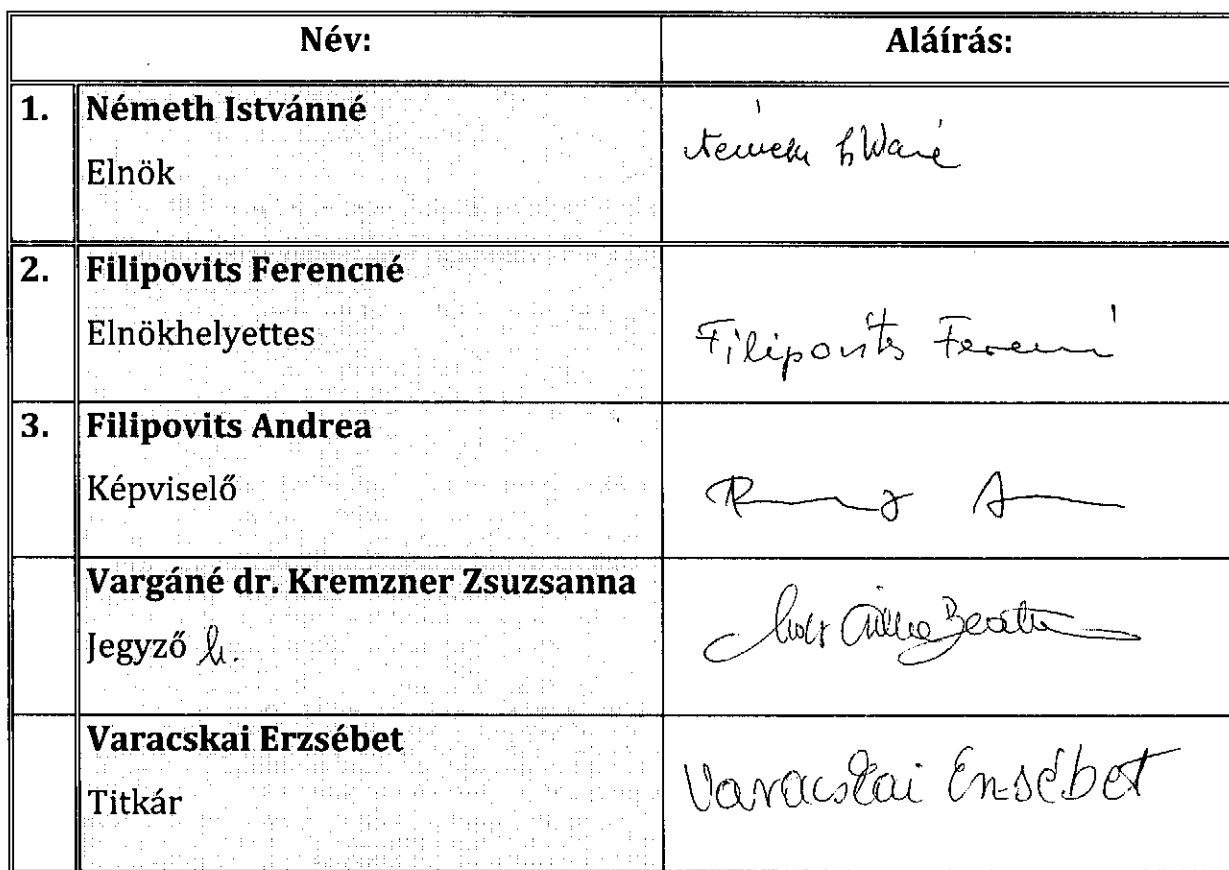 Név: Aláírás:
1. Németh Istvánné
Elnök
Németh
2. Filipovits Ferencné
Elnökhelyettes
Filipovits Ferencné
3. Filipovits Andrea
Képviselő
Vargáné dr. Kremzner Zsuzsanna
Jegyző h.
Beáta
Varacskai Erzsébet
Titkár
Varacskai Erzsébet